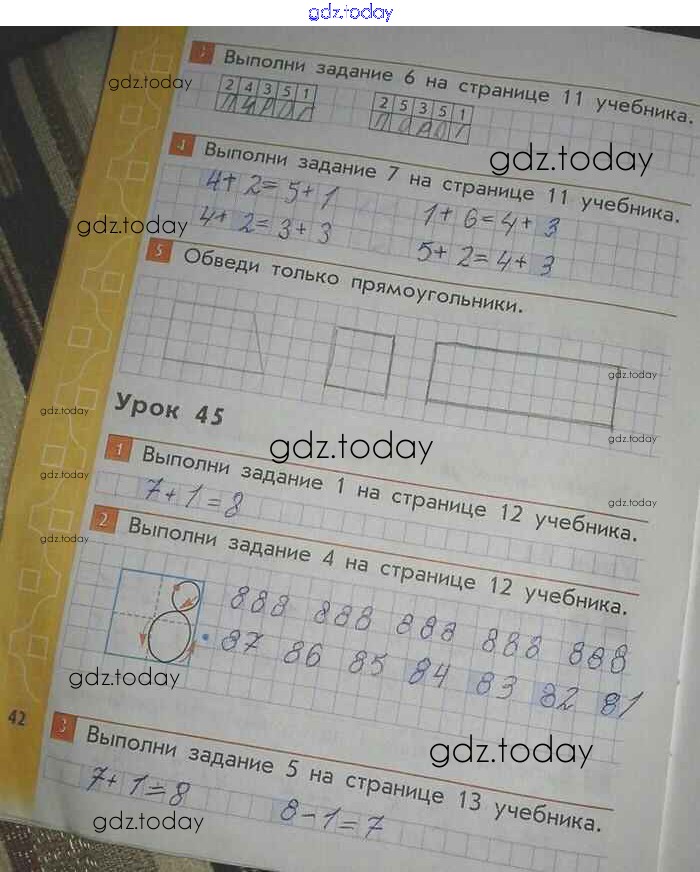 gdz.today
3 Выполни задание 6 на странице 11 учебника.
gdz.today
2 4 3 5 1
2 5 3 5 1
4 Выполни задание 7 на странице 11 учебника.
gdz.today
4+2=5+1
1+6=4+3
4+2=3+3
5+2=4+3
gdz.today
5 Обведи только прямоугольники.
gdz.today
Урок 45
gdz.today
gdz.today
gdz.today
1 Выполни задание 1 на странице 12 учебника.
gdz.today
gdz.today
7+1=8
2 Выполни задание 4 на странице 12 учебника.
gdz.today
888 888 888 888 888
87 86 85 84 83 82 81
gdz.today
42
3 Выполни задание 5 на странице 13 учебника.
gdz.today
7+1=8 8-1=7
gdz.today